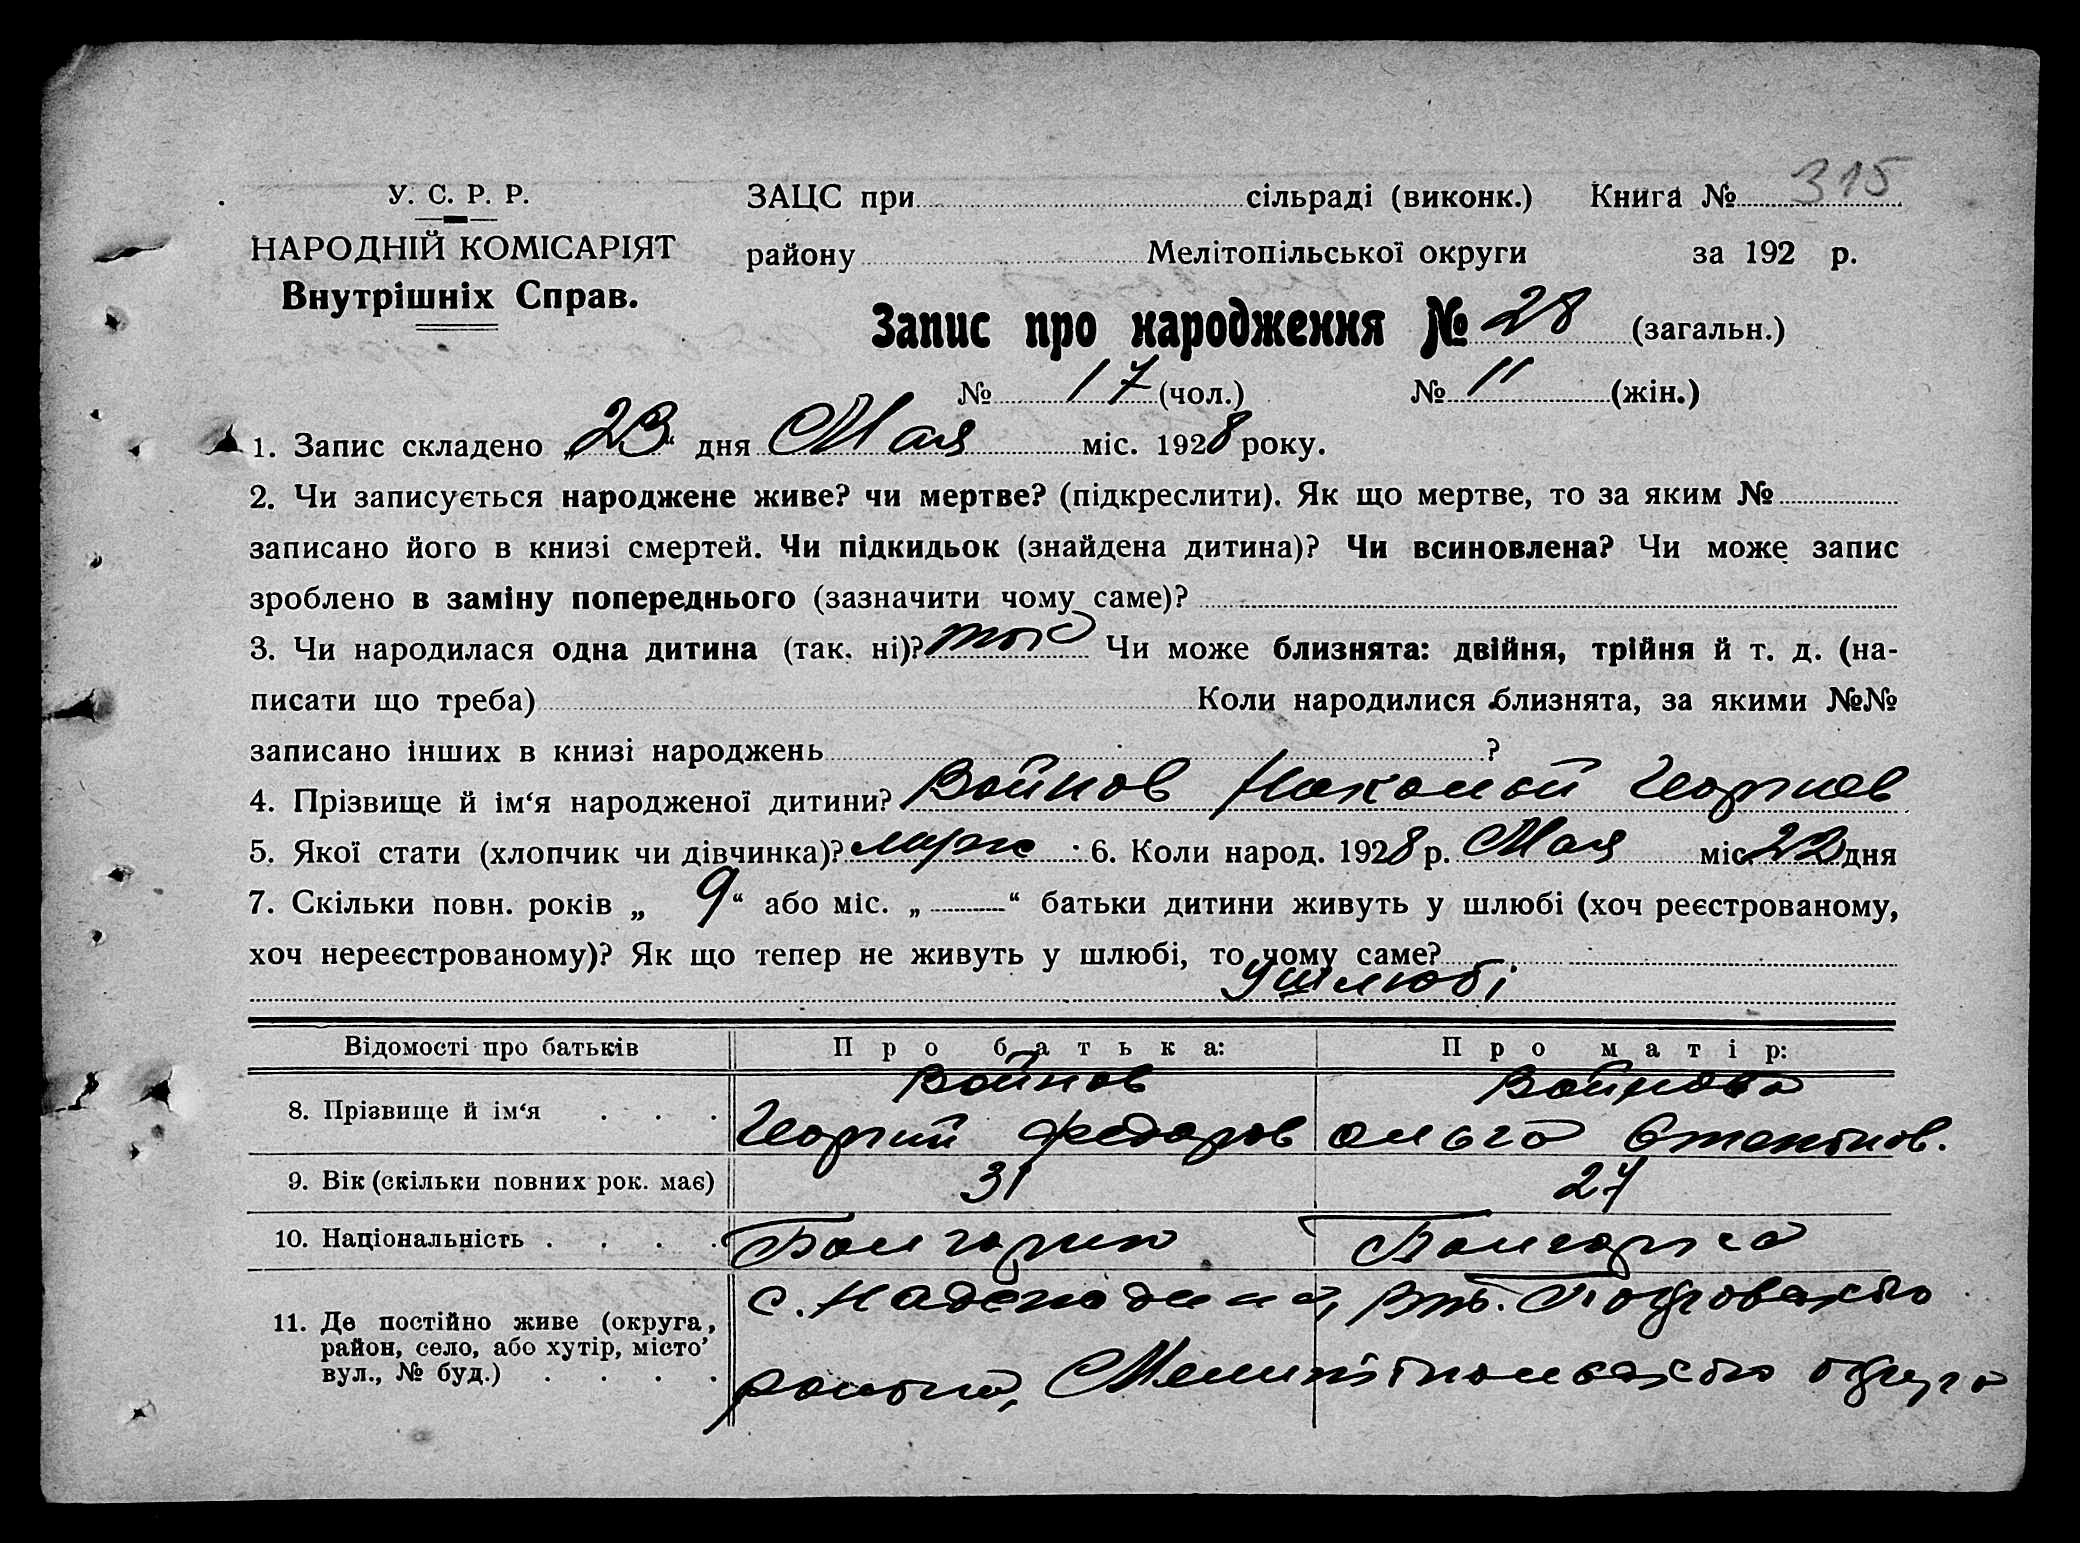 315
У. С. Р. Р.
НАРОДНІЙ КОМІСАРІЯТ
Внутрішніх Справ.
ЗАЦС при сільраді (виконк.) Книга №
району Мелітопільської округи за 192 р.
Запис про народження № 28 (загальн.)
№ 17 (чол.) № 11 (жін.)
1. Запис складено „23“ дня Мая міс. 1928 року.
2. Чи записується народжене живе? чи мертве? (підкреслити). Як що мертве, то за яким №
записано його в книзі смертей. Чи підкидьок (знайдена дитина)? Чи всиновлена? Чи може запис
зроблено в заміну попереднього (зазначити чому саме)?
3. Чи народилася одна дитина (так, ні)? Чи може близнята: двійня, трійня й т. д. (на-
писати що треба) Коли народилися близнята, за якими №№
записано інших в книзі народжень ?
4. Прізвище й ім‘я народженої дитини? Войнов Николай Георгиев
5. Якої стати (хлопчик чи дівчинка)? 6. Коли народ. 1928 р. Мая міс. 22 дня
7. Скільки повн. років „ 9 “ або міс. „ — “ батьки дитини живуть у шлюбі (хоч реєстрованому,
хоч нереєстрованому)? Як що тепер не живуть у шлюбі, то чому саме?
у шлюбі
Відомості про батьків Про батька: Про матір:
8. Прізвище й ім‘я . . . Войнов Войнова
Георгий Федоров Ольга Степанов.
9. Вік (скільки повних рок. має) 31 27
10. Національність . . . . Болгарин Болгарка
11. Де постійно живе (округа,
район, село, або хутір, місто’
вул., № буд.) . . . .
с. Надеждина, Покровского
района, Мелитопольского округа